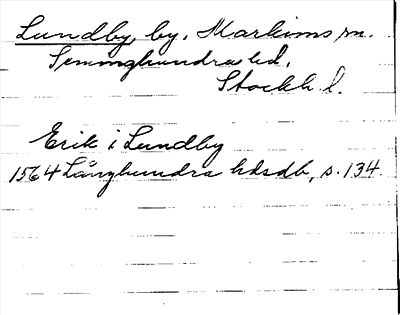 Lundby, by, Markims sn.
Seminghundra hd.
Stockh. l.
Erik i Lundby
1564 Långhundra hdsdb, s. 134.